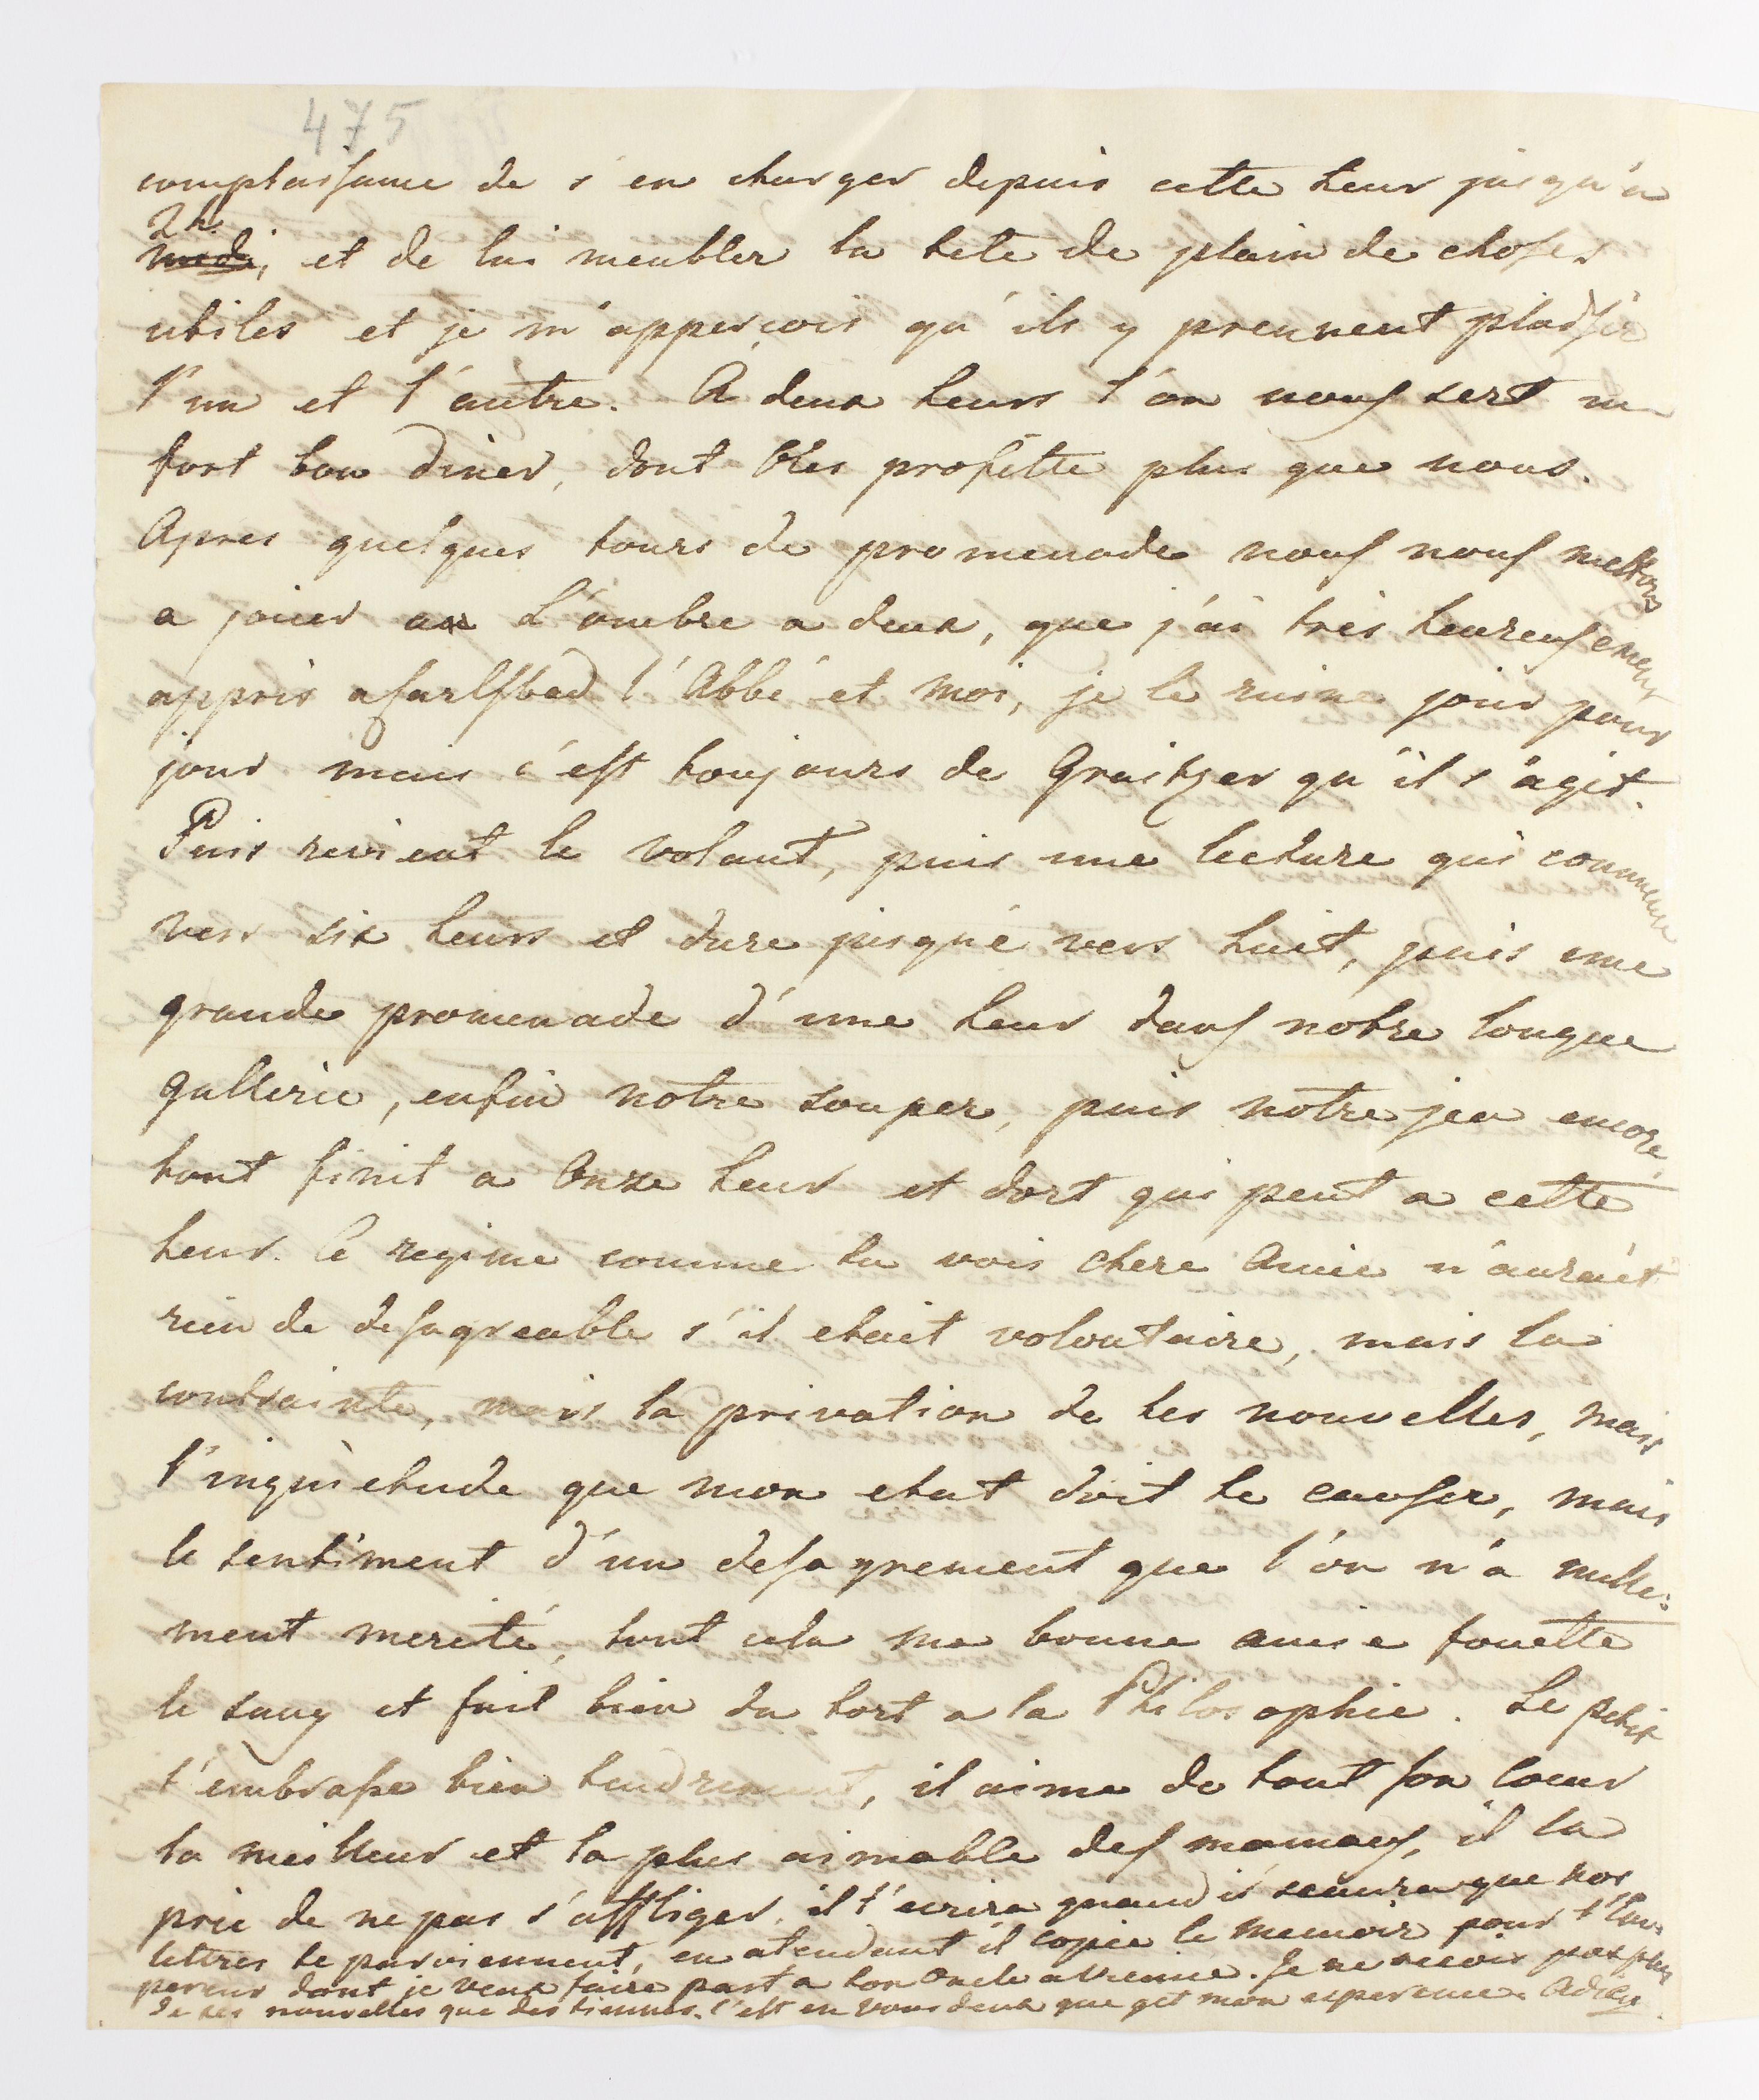 475
complaissance de s'en charger depuis cette heur jusqu'a
2 h.
midi, et de lui meubler la tete de plain de choses
utiles et je m'apperçois qu'ils y prennent plaissir
l'un et l'autre. A deux heurs l'on nous sert un
fort bon diner, dont profitte plus que nous.
Apres quelques tours de promenade nous nous mettons
a jouer a L'ombre a deux, que j'ai tres heureusement
appris a Carlsbad l'Abbé et moi, je le ruine jour pour
jour mais c'est toujours de Graitzer qu'il s'agit.
Puis revient le volant, puis une lecture qui commence
vers six heurs et dure jusqu'é vers huit, puis une
grande promenade d'une heur dans notre longue
gallerie, enfin notre souper, puis notre jeu encore,
tout finit a Onze heur et dort qui peut a cette
heur. Ce regime comme tu vois chere Amie n'auroit
rien de desagreable s'il etait volontaire, mais la
contrainte, mais la privation de tes nouvelles, mais
l'inquietude que mon etat doit te causer, mais
le sentiment d'un desagrement que l'on n'a nulle:
ment merité, tout cela ma bonne amie fouette
le sang et fait bien du tort a la Philosophie. Le petit
t'embrasse bien tendrement, il aime de tout son coeur
la meilleur et la plus aimable des mamans, il la
prie de ne pas s'affliger, il t'ecrira quand il saura que nos
lettres te parviennent, en atendant il copie le memoir pour l'Em:
pereur dont je veux faire part a ton Oncle a Vienne. Je ne recois pas plus
de ses nouvelles que des tiennes. C'est en vous deux que git mon esperance. Adieu